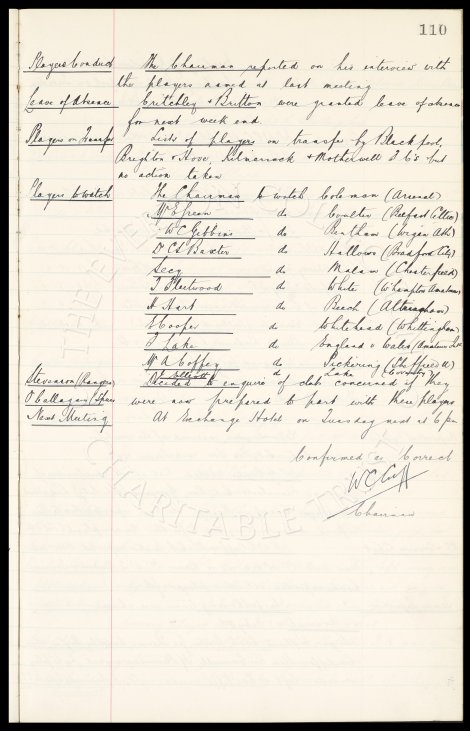 110
Players Conduct The Chairman reported on his interview with
the players named at last meeting
Leave of Absence Critchley & Britton were granted leave of absence
for next week end.
Players on Transfer Lists of players on transfer by Blackpool,
Brighton & Hove, Kilmarnock & Motherwell F C's but
no action taken
Players to watch The Chairman to watch Coleman (Arsenal)
Mr E Green do Coulter (Belfast Celtic)
" W C Gibbins do Rentham (Wigan Ath)
Dr C S Baxter do Hallows (Bradford City)
Secy do Malam (Chesterfield)
T Fleetwood do White (W'hampton Amateurs)
H Hart do Beach (Altrincham)
J Cooper do Whitehead (Whittingham)
J Lake do England v Wales (Amateur Int)
Mr A Coffey do Pickering (Sheffield U)
Lake (Coventry)
Stevenson (Rangers) Decided to enquire of club concerned if they
O'Callaghan (Spurs) were now prepared to part with these players
Next Meeting At Exchange Hotel on Tuesday next at 6 pm
Confirmed as Correct
W C Cuff
Chairman
THE EVERTON COLLECTION
CHARITABLE TRUST